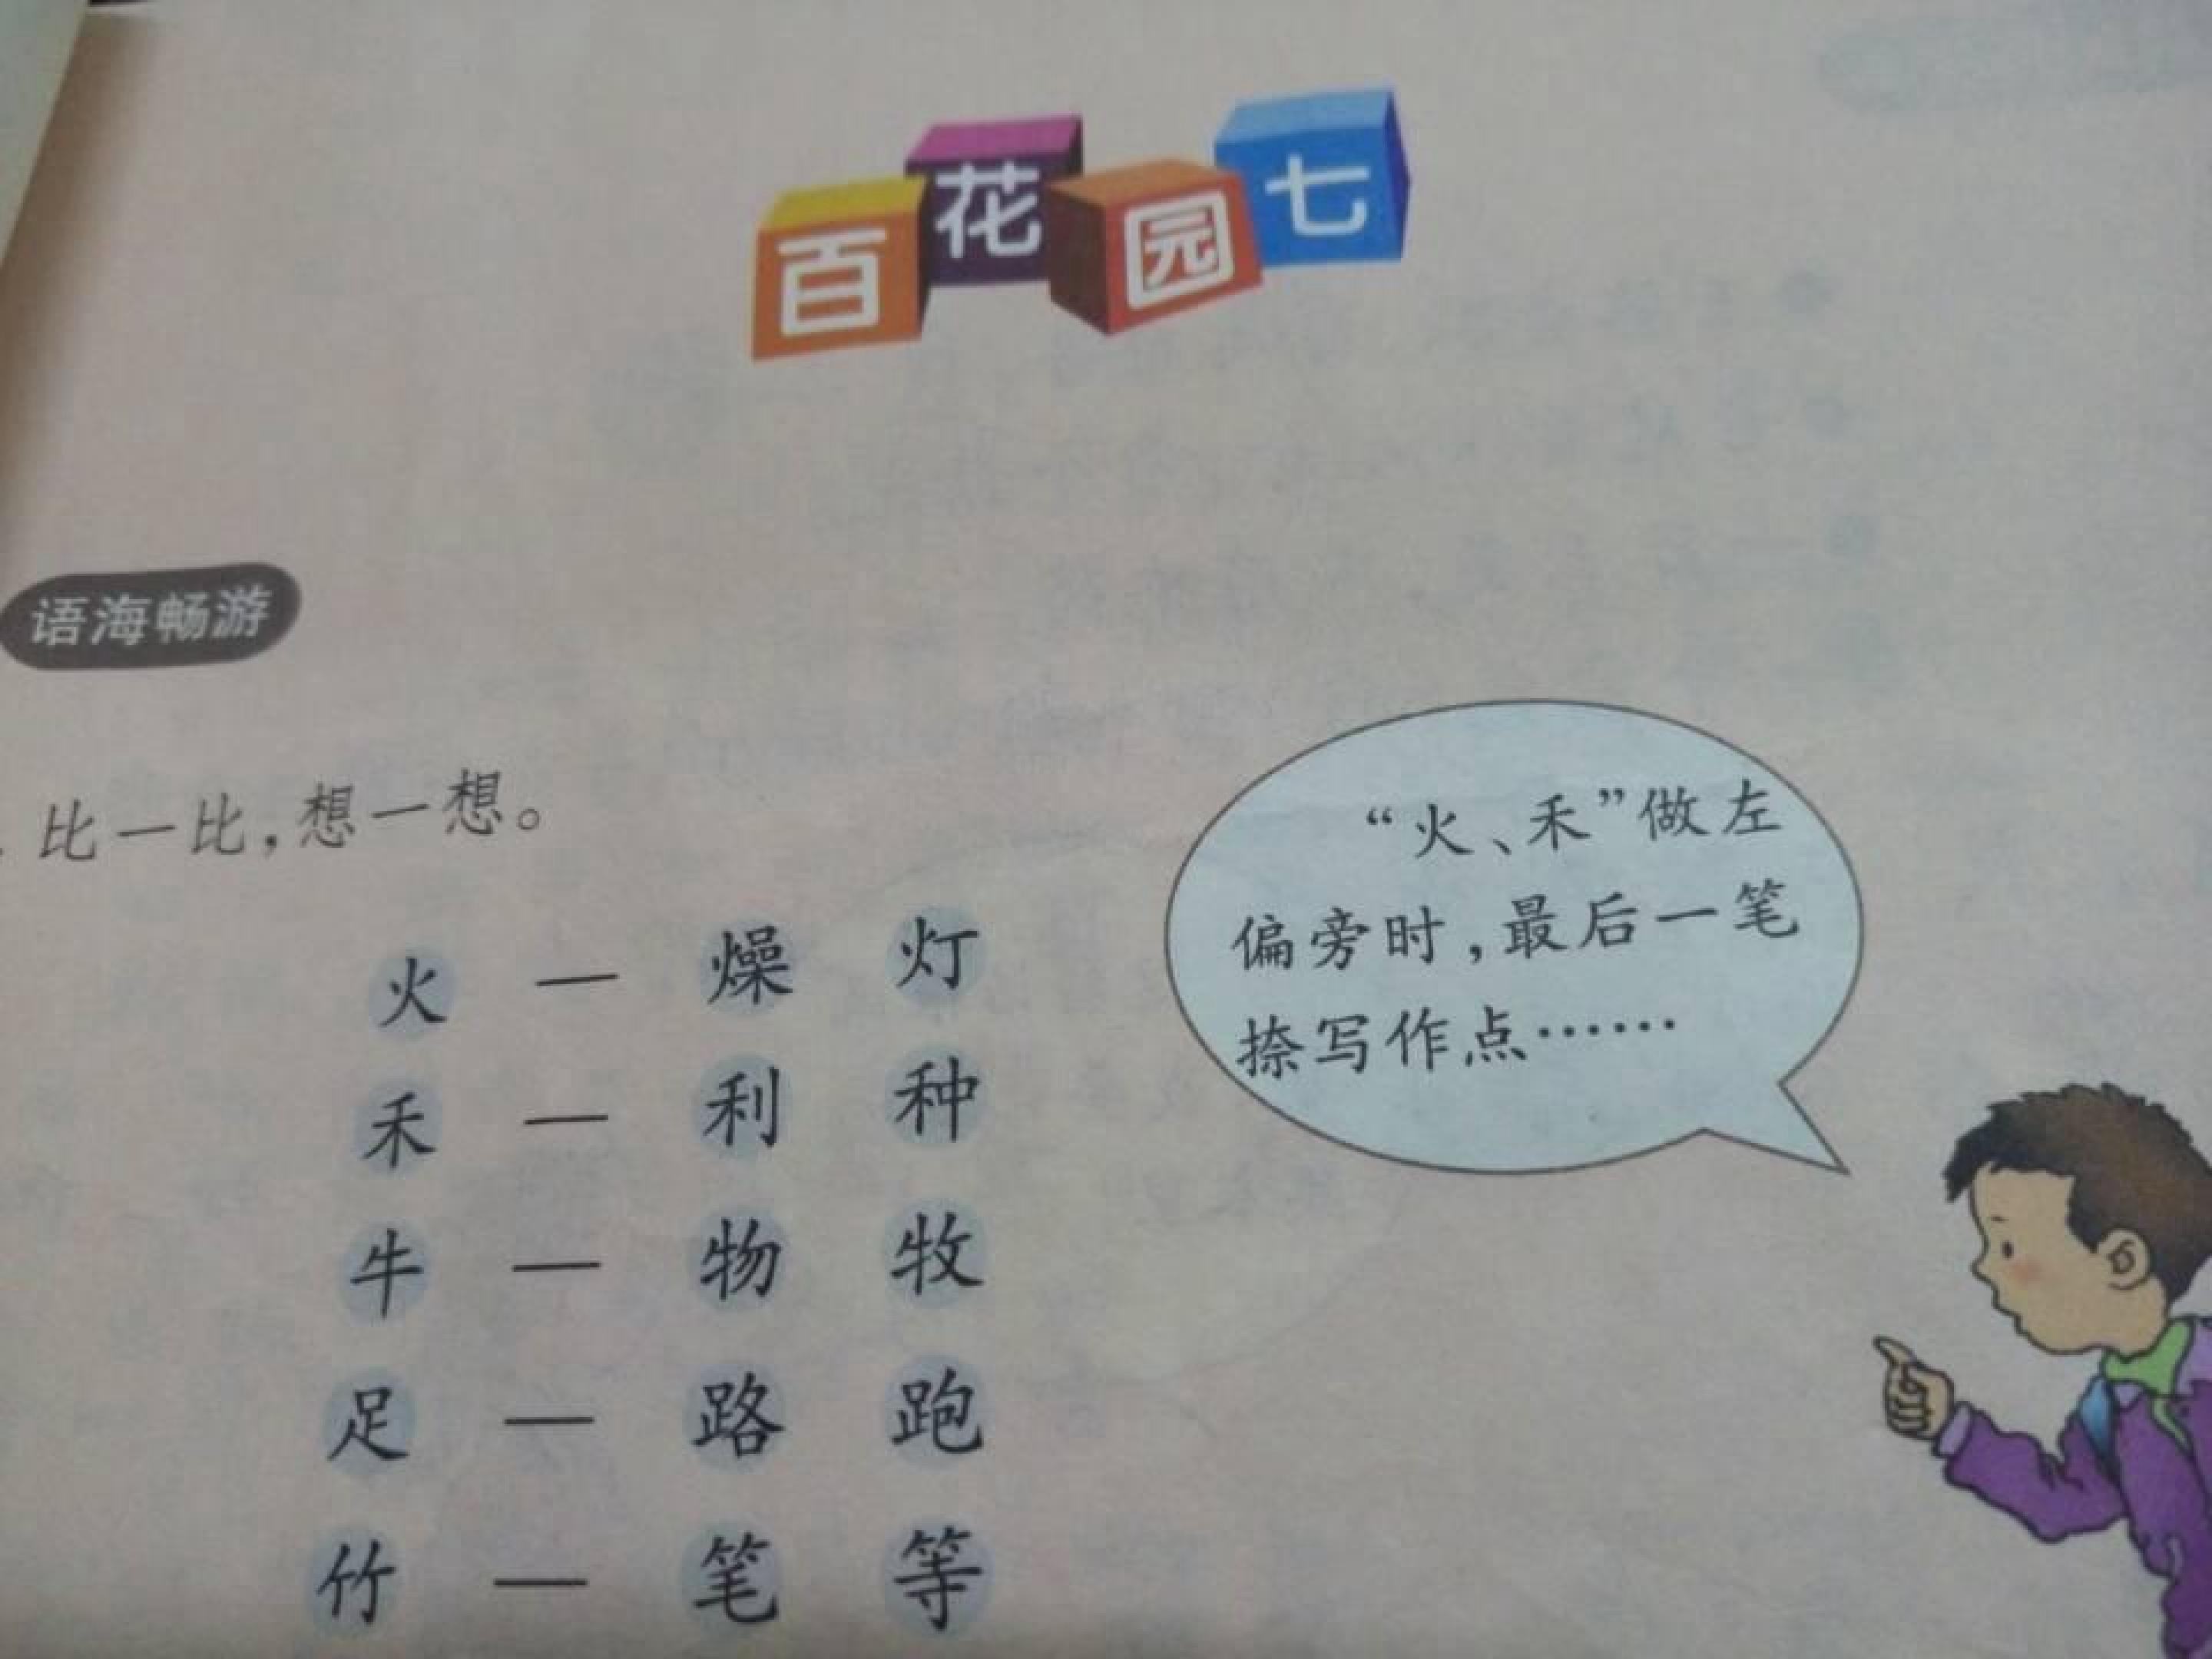 百花园七
语海畅游
比一比,想一想。
火 — 燥 灯
禾 — 利 种
牛 — 物 牧
足 — 路 跑
竹 — 笔 等
“火、禾”做左
偏旁时,最后一笔
捺写作点……